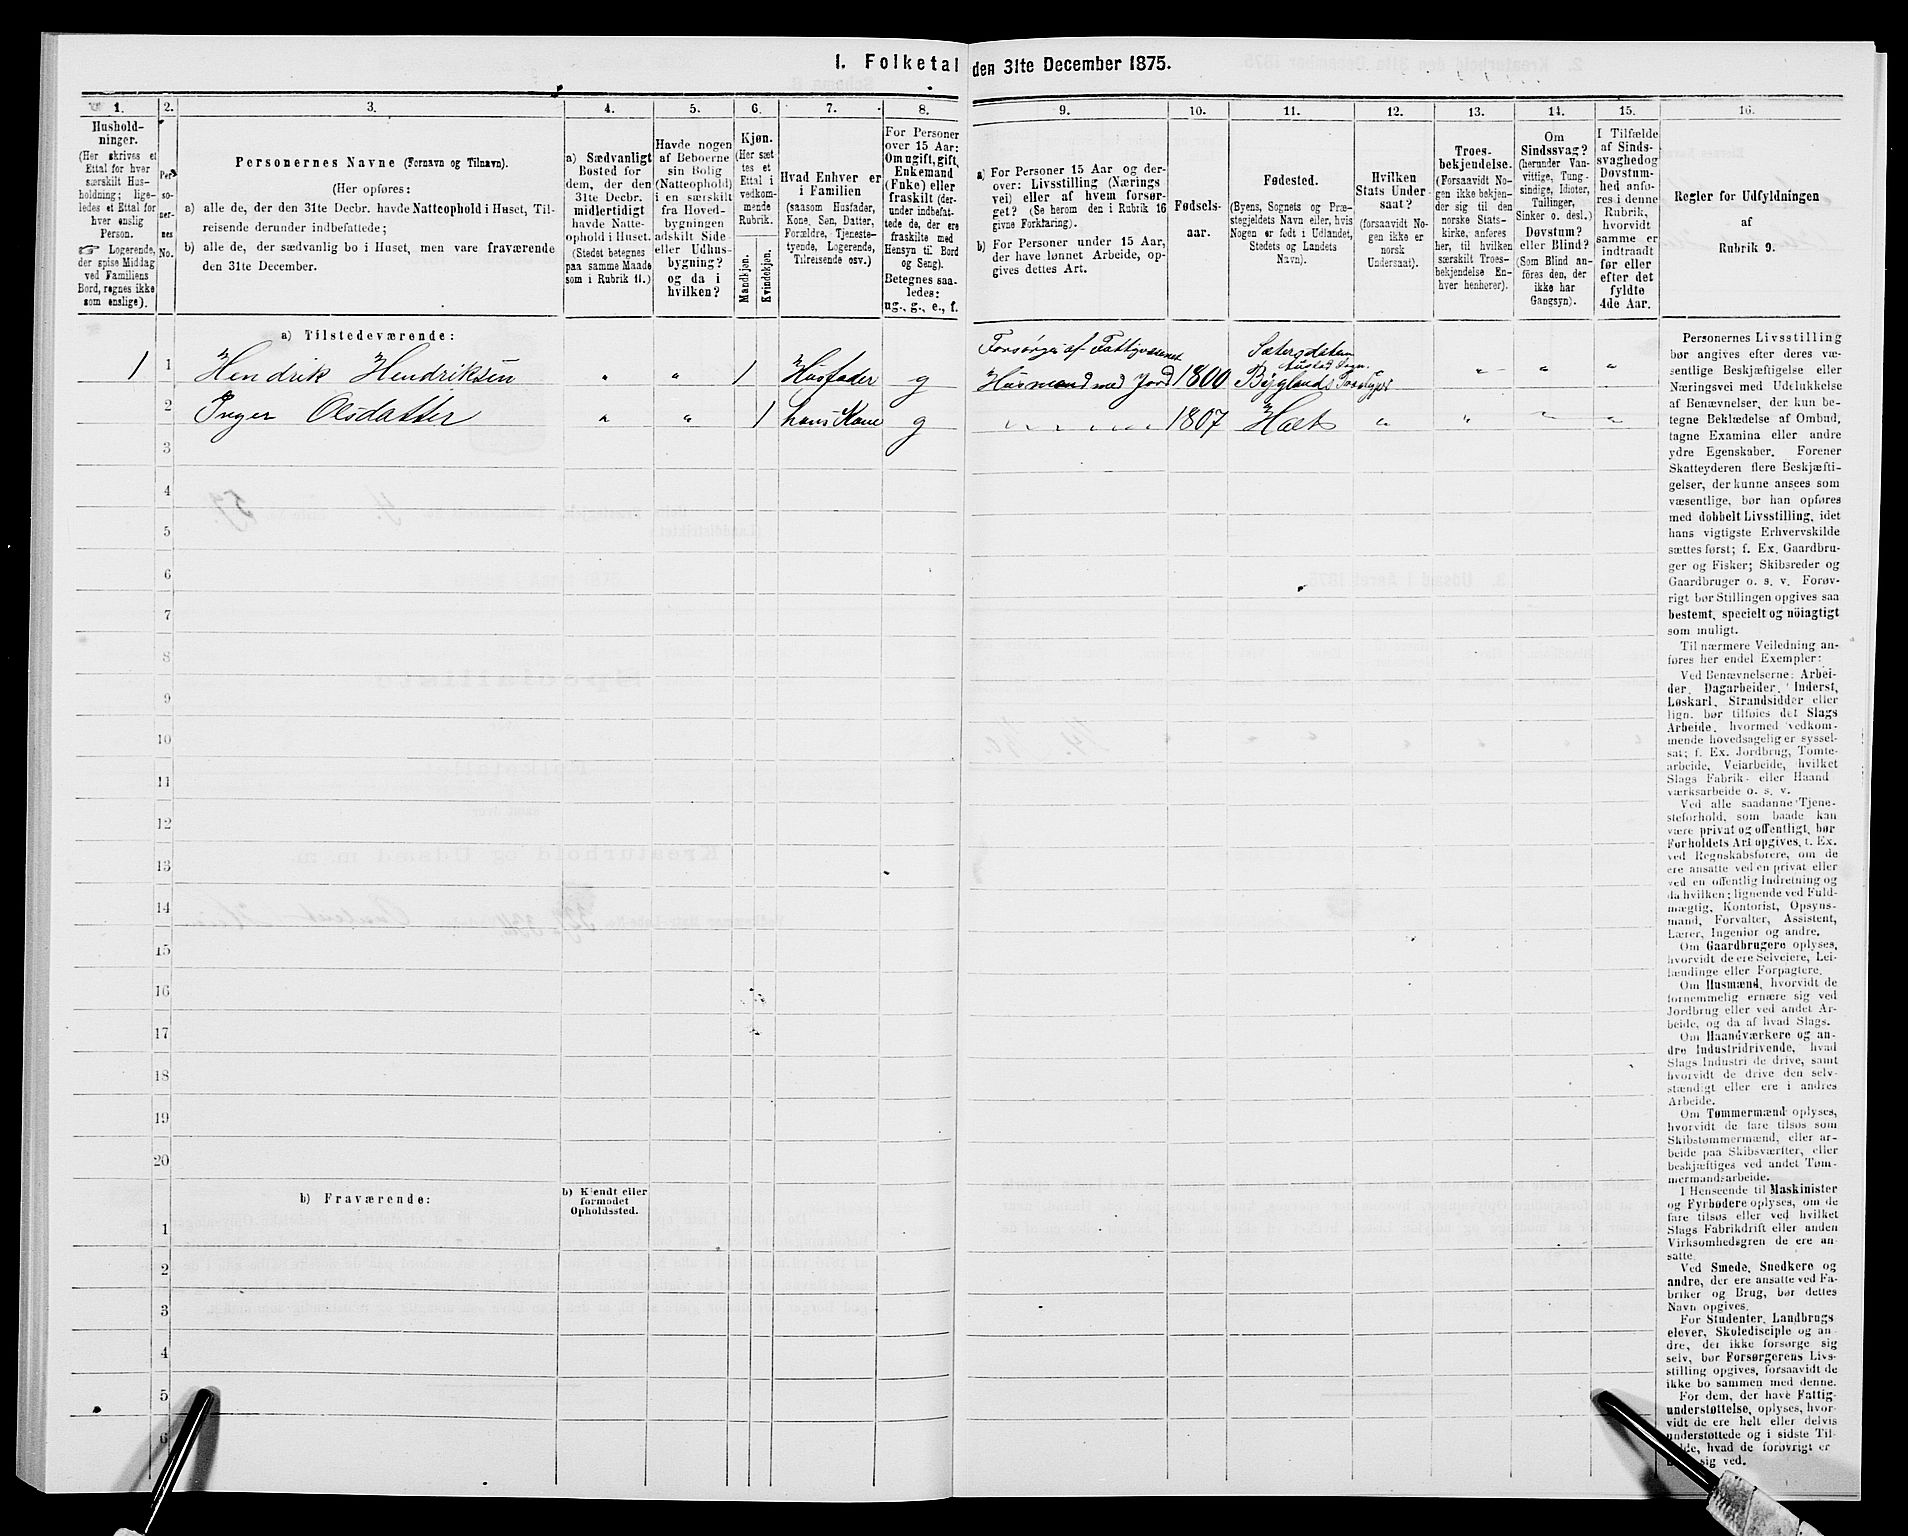 1. Folketal den 31te December 1875.
1. 2. 3. 4. 5. 6. 7. 8. 9. 10. 11. 12. 13. 14. 15. 16.
Hushold-
ninger.
(Her skrives et
Ettal for hver
særskilt Hus-
holdning; lige-
ledes et Ettal for
hver enslig
Person.
☞ Logerende,
der spise Middag
ved Familiens
Bord, regnes ikke
som enslige).
Per-
so-
ner-
nes
No.
Personernes Navne (Fornavn og Tilnavn).
(Her opføres:
a) alle de, der den 31te Decbr. havde Natteophold i Huset, Til-
reisende derunder indbefattede;
b) alle de, der sædvanlig bo i Huset, men vare fraværende
den 31te December.
a) Sædvanligt
Bosted for
dem, der den
31te Decbr.
midlertidigt
havde Natte-
ophold i Huset.
(Stedet betegnes
paa samme Maade
som i Rubrik 11.)
Havde nogen
af Beboerne
sin Bolig
(Natteophold)
i en særskilt
fra Hoved-
bygningen
adskilt Side
eller Udhus-
bygning?
og da i
hvilken?
Kjøn.
(Her sæt
tes et
Ettal i
vedkom-
mende
Rubrik.
Mandkjøn.
Kvindekjøn.
Hvad Enhver er
i Familien
(saasom Husfader,
Kone, Søn, Datter,
Forældre, Tjeneste-
tyende, Logerende,
Tilreisende osv.)
For Personer
over 15 Aar:
Om ugift, gift,
Enkemand
(Enke) eller
fraskilt (der-
under indbefat-
tede de, der ere
fraskilte med
Hensyn til Bord
og Seng).
Betegnes saa-
ledes:
ug., g., e., f.
a) For Personer 15 Aar og der-
over: Livsstilling (Nærings
vei) eller af hvem forsør-
get? (Se herom den i Rubrik 16
givne Forklaring).
b) For Personer under 15 Aar,
der have lønnet Arbeide, op-
gives dettes Art.
Fødsels-
aar.
Fødested.
(Byens, Sognets og Præ-
stegjeldets Navn eller, hvis
Nogen er født i Udlandet,
Stedets og Landets
Navn).
Hvilken
Stats Under-
saat?
(forsaavidt No-
gen ikke er
norsk
Undersaat).
Troes-
bekjendelse.
(Forsaavidt No-
gen ikke bekjen-
der sig til den
norske Stats-
kirke, anføres
her, til hvilken
særskilt Troes-
bekjendelse En-
hver henhører).
Om
Sindssvag?
(herunder Van-
vittige, Tung-
sindige, Idioter,
Tullinger,
Sinker o. desl.)
Døvstum?
eller Blind?
(Som Blind an-
føres den, der
ikke har
Gangsyn).
I Tilfælde
af Sinds-
svaghed og
Døvstum-
hed anfø-
res i denne
Rubrik,
hvorvidt
samme er
indtraadt
før eller
efter det
fyldte
4de Aar.
Regler for Udfyldningen
af
Rubrik 9.
a) Tilstedeværende:
Forsørges af Fattigvæsenet Sætersdalen
1 1 Hendrik Hendriksen " " 1 Husfader g Husmand med Jord 1800 Bygland's " " "
2 Inger Olsdatter " " 1 hans Kone g " " " " 1807 Holt " " " "
3
4
5
6
7
8
9
10
11
12
13
14
15
16
17
18
19
20
b) Fraværende:
b) Kjendt eller
formodet
Opholdssted.
1
2
3
4
5
6
Personernes Livsstilling
bør angives efter deres væ-
sentlige Beskjæftigelse eller
Næringsvei med Udelukkelse
af Benævnelser, der kun be-
tegne Beklædelse af Ombud,
tagne Examina eller andre
ydre Egenskaber. Forener
Skatteyderen flere Beskjæfti-
gelser, der kunne ansees som
væsentlige, bør han opføres
med dobbelt Livsstilling, idet
hans vigtigste Erhvervskilde
sættes først; f. Ex. Gaardbru-
ger og Fisker; Skibsreder og
Gaardbruger o. s. v. Forøv-
rigt bør Stillingen opgives saa
bestemt, specielt og nöiagtigt
som muligt.
Til nærmere Veiledning an-
føres her endel Exempler:
Ved Benævnelserne: Arbei-
der, Dagarbeider, Inderst,
Løskarl, Strandsidder eller
lign. bør tilføies det Slags
Arbeide, hvormed vedkom-
mende hovedsagelig er syssel-
sat; f. Ex. Jordbrug, Tomte-
arbeide, Veiarbeide, hvilket
Slags Fabrik- eller Haand
værksarbeide o. s. v.
Ved alle saadanne Tjene-
steforhold, som baade kan
være privat og offentligt, bør
Forholdets Art opgives, f. Ex.
ved Regnskabsførere, om de
ere ansatte ved en privat eller
ved en offentlig Indretning og
da hvilken; lignende ved Fuld-
mægtig, Kontorist, Opsyns-
mand, Forvalter, Assistent,
Lærer, Ingeniør og andre.
Om Gaardbrugere oplyses,
hvorvidt de ere Selveiere, Lei-
lændinge eller Forpagtere.
Om Husmænd, hvorvidt de
fornemmelig ernære sig ved
Jordbrug eller ved andet Ar-
beide, og da af hvad Slags.
Om Haandværkere og an-
dre Industridrivende, hvad
Slags Industri de drive, samt
hvorvidt de drive den selv-
stændigt eller ere i andres
Arbeide.
Om Tømmermænd oplyses,
hvorvidt de fare tilsøs som
Skibstømmermænd, eller ar-
beide paa Skibsværfter, eller
beskjæftiges ved andet Tøm-
mermandsarbeide.
I Henseende til Maskinister
og Fyrbødere oplyses, om de
fare tilsøs eller ved hvilket
Slags Fabrikdrift eller anden
Virksomhedsgren de ere an-
satte.
Ved Smede, Snedkere og
andre, der ere ansatte ved Fa-
briker og Brug, bør dettes
Navn opgives.
For Studenter, Landbrugs
elever, Skoledisciple og an-
dre, der ikke forsørge sig
selv, bør Forsørgerens Livs-
stilling opgives, forsaavidt de
ikke bo sammen med denne.
For dem, der have Fattig-
understøttelse, oplyses, hvor-
vidt de ere helt eller delvis
understøttede og i sidste Til-
hvad de forøvrigt er
sig ved.